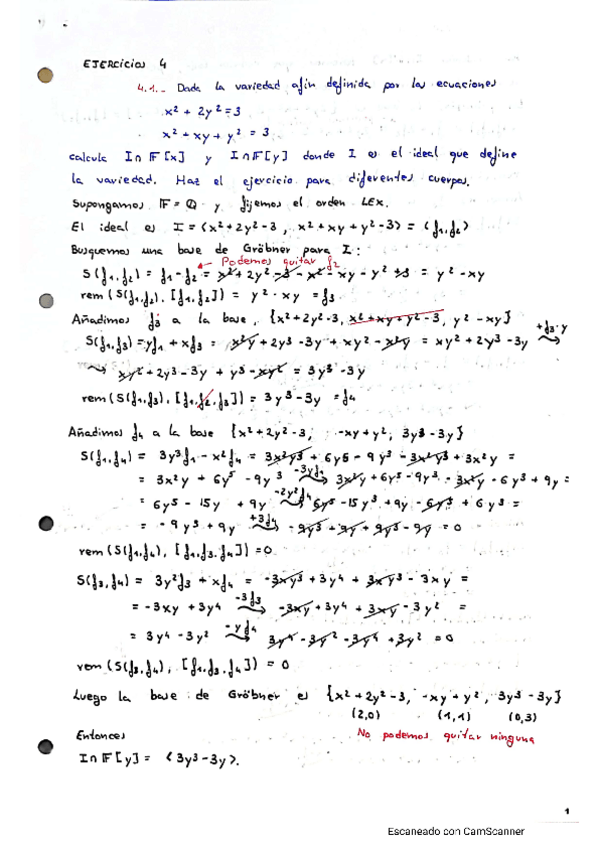 EJERCICIOS 4
4.1.- Dada la variedad afín definida por las ecuaciones
x² + 2y² = 3
x² + xy + y² = 3
calcula I∩F[x] y I∩F[y] donde I es el ideal que define
la variedad. Haz el ejercicio para diferentes cuerpos.
Supongamos F = Q y fijemos el orden LEX.
El ideal es I = <x² + 2y² - 3, x² + xy + y² - 3> = <f₁, f₂>
Busquemos una base de Gröbner para I:
Podemos quitar f₂
S(f₁,f₂) = f₁ - f₂ = x² + 2y² - 3 - x² - xy - y² + 3 = y² - xy
rem(S(f₁,f₂), [f₁,f₂]) = y² - xy = f₃
Añadimos f₃ a la base, {x² + 2y² - 3, x² + xy + y² - 3, y² - xy}
S(f₁,f₃) = yf₁ + xf₃ = x²y + 2y³ - 3y + xy² - x²y = xy² + 2y³ - 3y +f₃·y
⇝ xy² + 2y³ - 3y + y³ - xy² = 3y³ - 3y
rem(S(f₁,f₃), [f₁,f₂,f₃]) = 3y³ - 3y = f₄
Añadimos f₄ a la base {x² + 2y² - 3, -xy + y², 3y³ - 3y}
S(f₁,f₄) = 3y³f₁ - x²f₄ = 3x²y³ + 6y⁵ - 9y³ - 3x²y³ + 3x²y =
= 3x²y + 6y⁵ - 9y³ -3yf₁ ⇝ 3x²y + 6y⁵ - 9y³ - 3x²y - 6y³ + 9y =
= 6y⁵ - 15y + 9y -2y²f₄ ⇝ 6y⁵ - 15y³ + 9y - 6y⁵ + 6y³ =
= -9y³ + 9y +3f₄ ⇝ -9y³ + 9y + 9y³ - 9y = 0
rem(S(f₁,f₄), [f₁,f₃,f₄]) = 0
S(f₃,f₄) = 3y²f₃ + xf₄ = -3xy³ + 3y⁴ + 3xy³ - 3xy =
= -3xy + 3y⁴ -3f₃ ⇝ -3xy + 3y⁴ + 3xy - 3y² =
= 3y⁴ - 3y² -yf₄ ⇝ 3y⁴ - 3y² - 3y⁴ + 3y² = 0
rem(S(f₃,f₄), [f₁,f₃,f₄]) = 0
Luego la base de Gröbner es {x² + 2y² - 3, -xy + y², 3y³ - 3y}
(2,0) (1,1) (0,3)
Entonces No podemos quitar ninguna
I∩F[y] = <3y³ - 3y>.
1
Escaneado con CamScanner